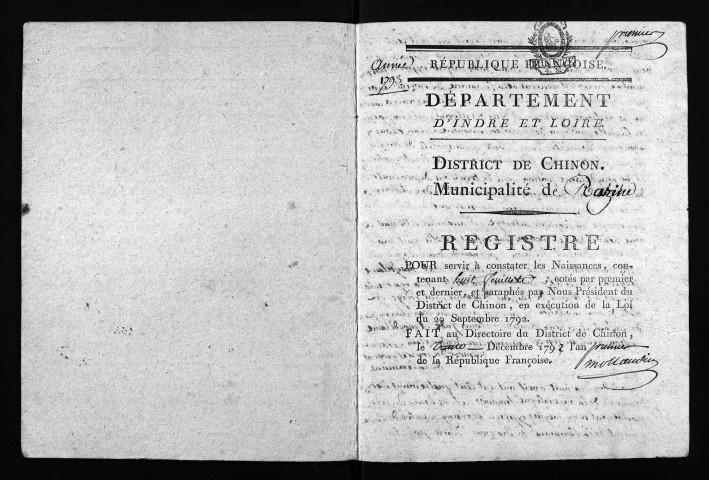 premier
Année
1793
RÉPUBLIQUE FRANÇOISE.
DÉPARTEMENT
D'INDRE ET LOIRE.
DISTRICT DE CHINON.
Municipalité de Raziné
REGISTRE
POUR servir à constater les Naissances, con-
tenant huit feuillets, cotés par premier
et dernier, et paraphés par Nous Président du
District de Chinon, en exécution de la Loi
du 20 Septembre 1792.
FAIT au Directoire du District de Chinon,
le Décembre 1792 l'an premier
de la République Françoise.